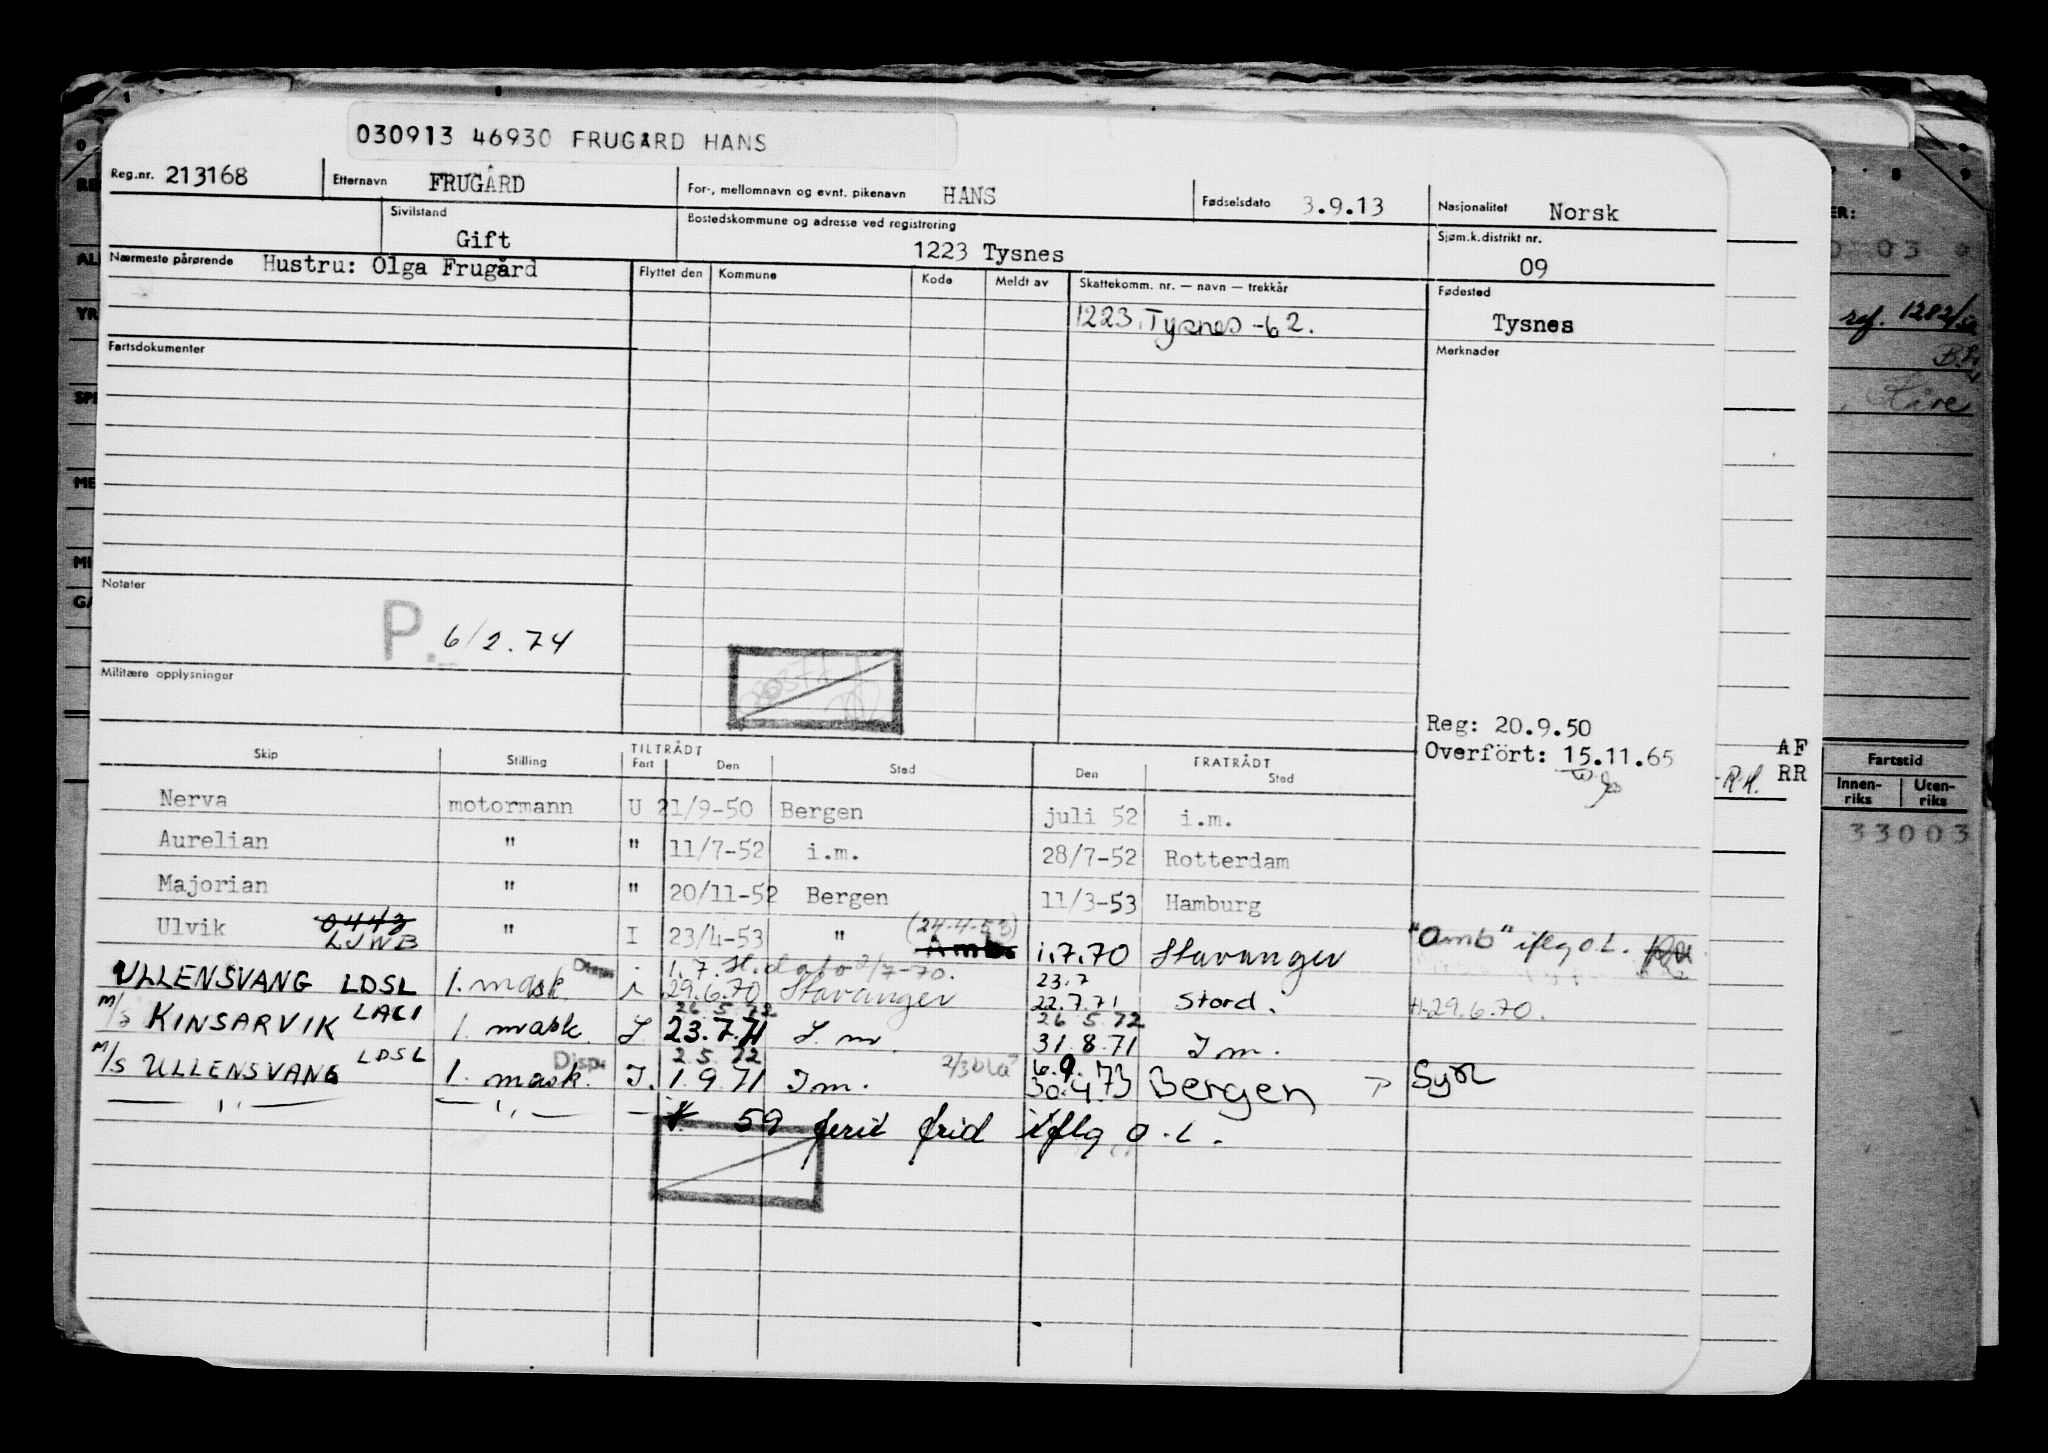 030913 46930 FRUGÅRD HANS
Reg.nr. 213168 Etternavn FRUGÅRD For-, mellomnavn og evnt. pikenavn HANS Fødselsdato 3.9.13 Nasjonalitet Norsk
Sivilstand Gift Bostedskommune og adresse ved registrering 1223 Tysnes Sjøm.k.distrikt nr. 09
Nærmeste pårørende Hustru: Olga Frugård Flyttet den Kommune Kode Meldt av Skattekomm. nr. — navn — trekkår Fødested
1223. Tysnes -62. Tysnes
Fartsdokumenter Merknader
Notater
P. 6/2.74
Militære opplysninger
Reg: 20.9.50
Overført: 15.11.65
Skip Stilling TILTRÅDT Fart Den Sted FRATRÅDT Den Sted
Nerva motormann U 21/9-50 Bergen juli 52 i.m.
Aurelian " " 11/7-52 i.m. 28/7-52 Rotterdam
Majorian " " 20/11-52 Bergen 11/3-53 Hamburg
(24-4-53)
Ulvik 0443 LJWB " I 23/4-53 " Amb. 1.7.70 Stavanger "Amb" iflg o.L.
1.7. 2/7-70. 23.7
ULLENSVANG LDSL 1. mask. i 29.6.70 Stavanger 22.7.71 Stord. 29.6.70.
26.5.72 26 5 72
M/S KINSARVIK LACI 1. mask. I 23.7.71 I m. 31.8.71 I m.
Disp. 2.5.72 6.9.
M/S ULLENSVANG LDSL 1. mask. I. 1.9.71 I m. 30.4.73 Bergen
— " — — " — — 59 ferie frid iflg o.L.
ref. 1282/
AF
RR
R.H.
Fartstid
Innen-riks Uten-riks
33003